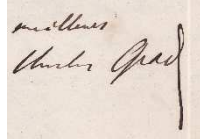 meilleurs
Charles Grad